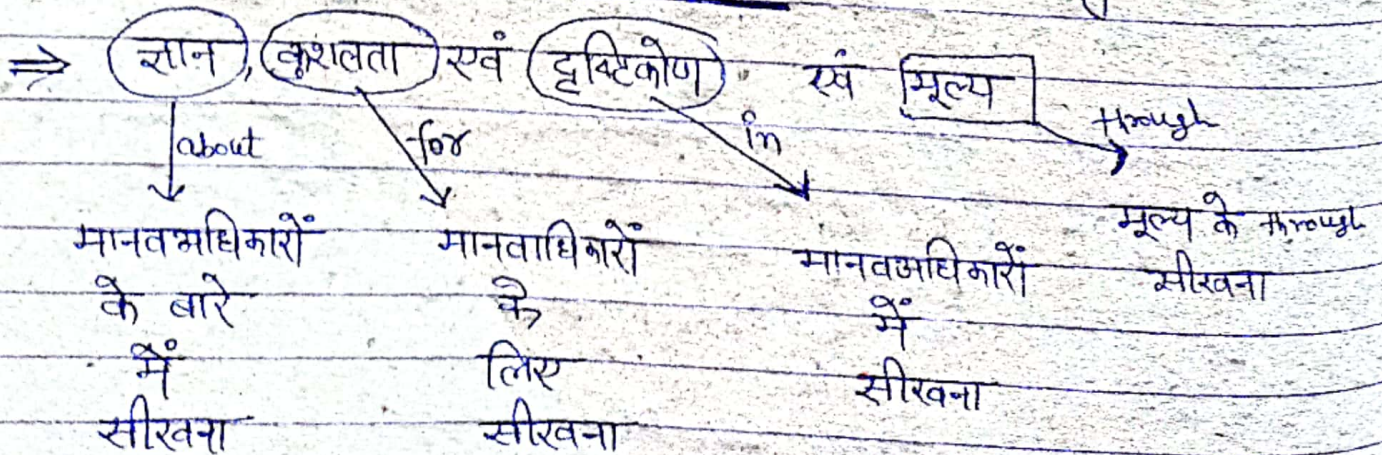 ⇒ ज्ञान, कुशलता एवं दृष्टिकोण एवं मूल्य
about for in through
मानवअधिकारों
के बारे
में
सीखना
मानवाधिकारों
के
लिए
सीखना
मानवअधिकारों
में
सीखना
मूल्य के through
सीखना